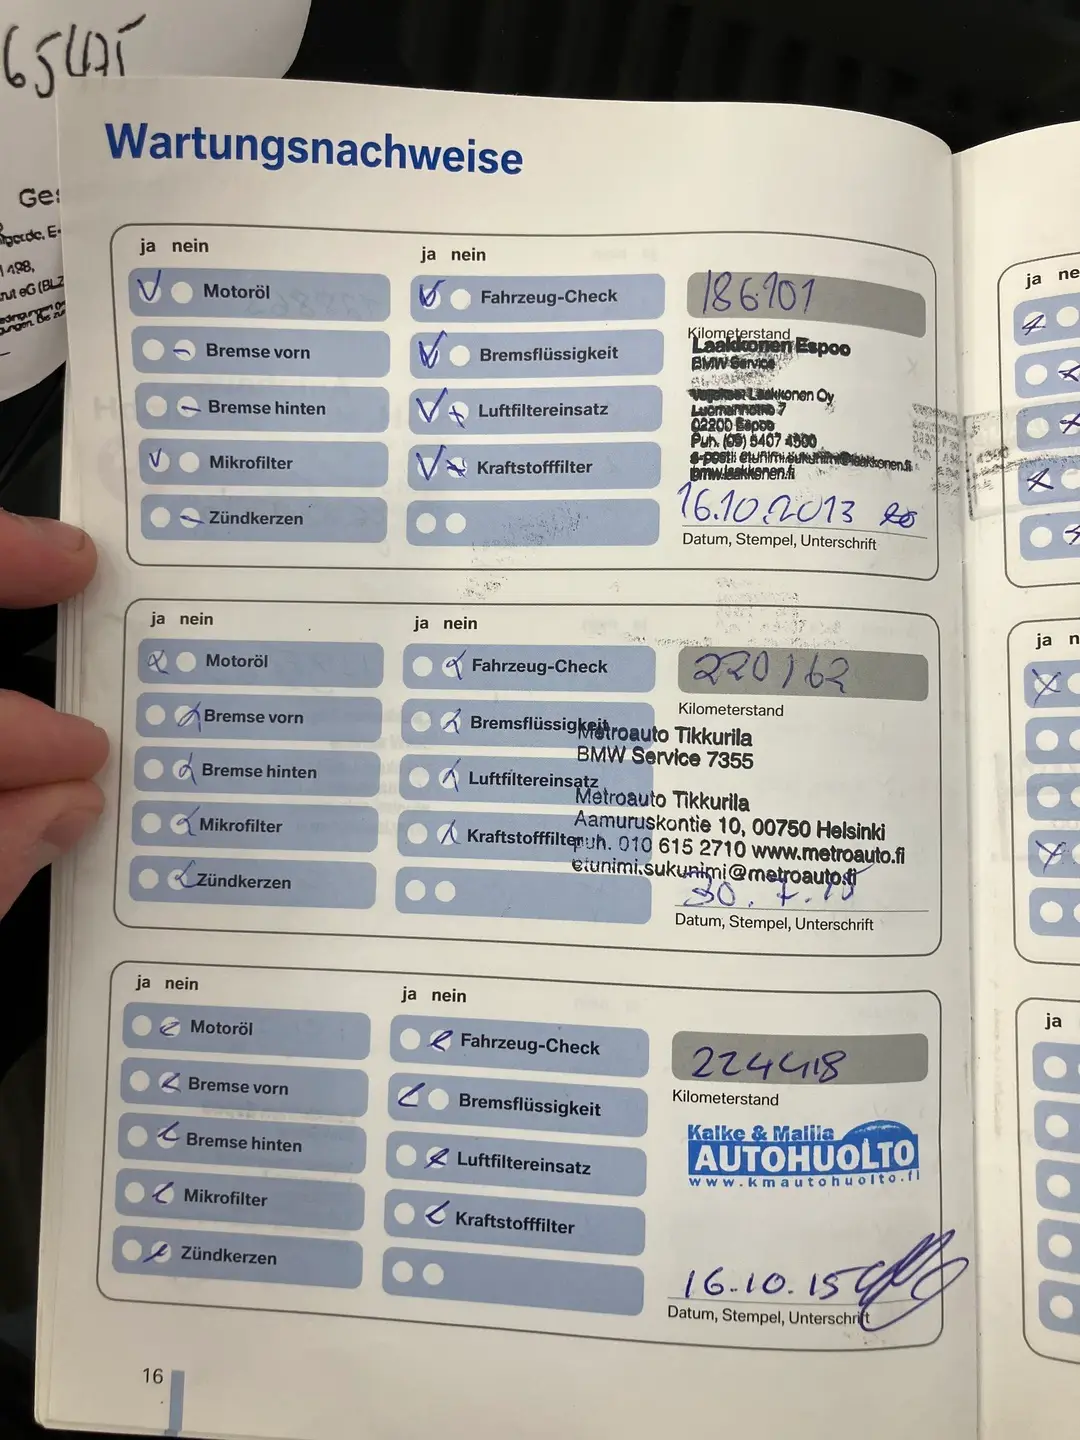 65
Ge
498,
nrut eG (BLZ
Wartungsnachweise
ja nein
Motoröl
Bremse vorn
Bremse hinten
Mikrofilter
Zündkerzen
ja nein
Fahrzeug-Check
Bremsflüssigkeit
Luftfiltereinsatz
Kraftstofffilter
186101
Kilometerstand
Laakkonen Espoo
BMW Service
Laakkonen Oy
Luomannotko 7
02200 Espoo
Puh. (09) 5407 4300
bmw.laakkonen.fi
16.10.2013
Datum, Stempel, Unterschrift
ja nein
Motoröl
Bremse vorn
Bremse hinten
Mikrofilter
Zündkerzen
ja nein
Fahrzeug-Check
Bremsflüssigkeit
Luftfiltereinsatz
Kraftstofffilter
220162
Kilometerstand
Metroauto Tikkurila
BMW Service 7355
Metroauto Tikkurila
Aamuruskontie 10, 00750 Helsinki
puh. 010 615 2710 www.metroauto.fi
etunimi.sukunimi@metroauto.fi
30.7.15
Datum, Stempel, Unterschrift
ja nein
Motoröl
Bremse vorn
Bremse hinten
Mikrofilter
Zündkerzen
ja nein
Fahrzeug-Check
Bremsflüssigkeit
Luftfiltereinsatz
Kraftstofffilter
224418
Kilometerstand
Kalke & Malila
AUTOHUOLTO
www.kmautohuolto.fi
16.10.15
Datum, Stempel, Unterschrift
16
ja ne
ja n
ja